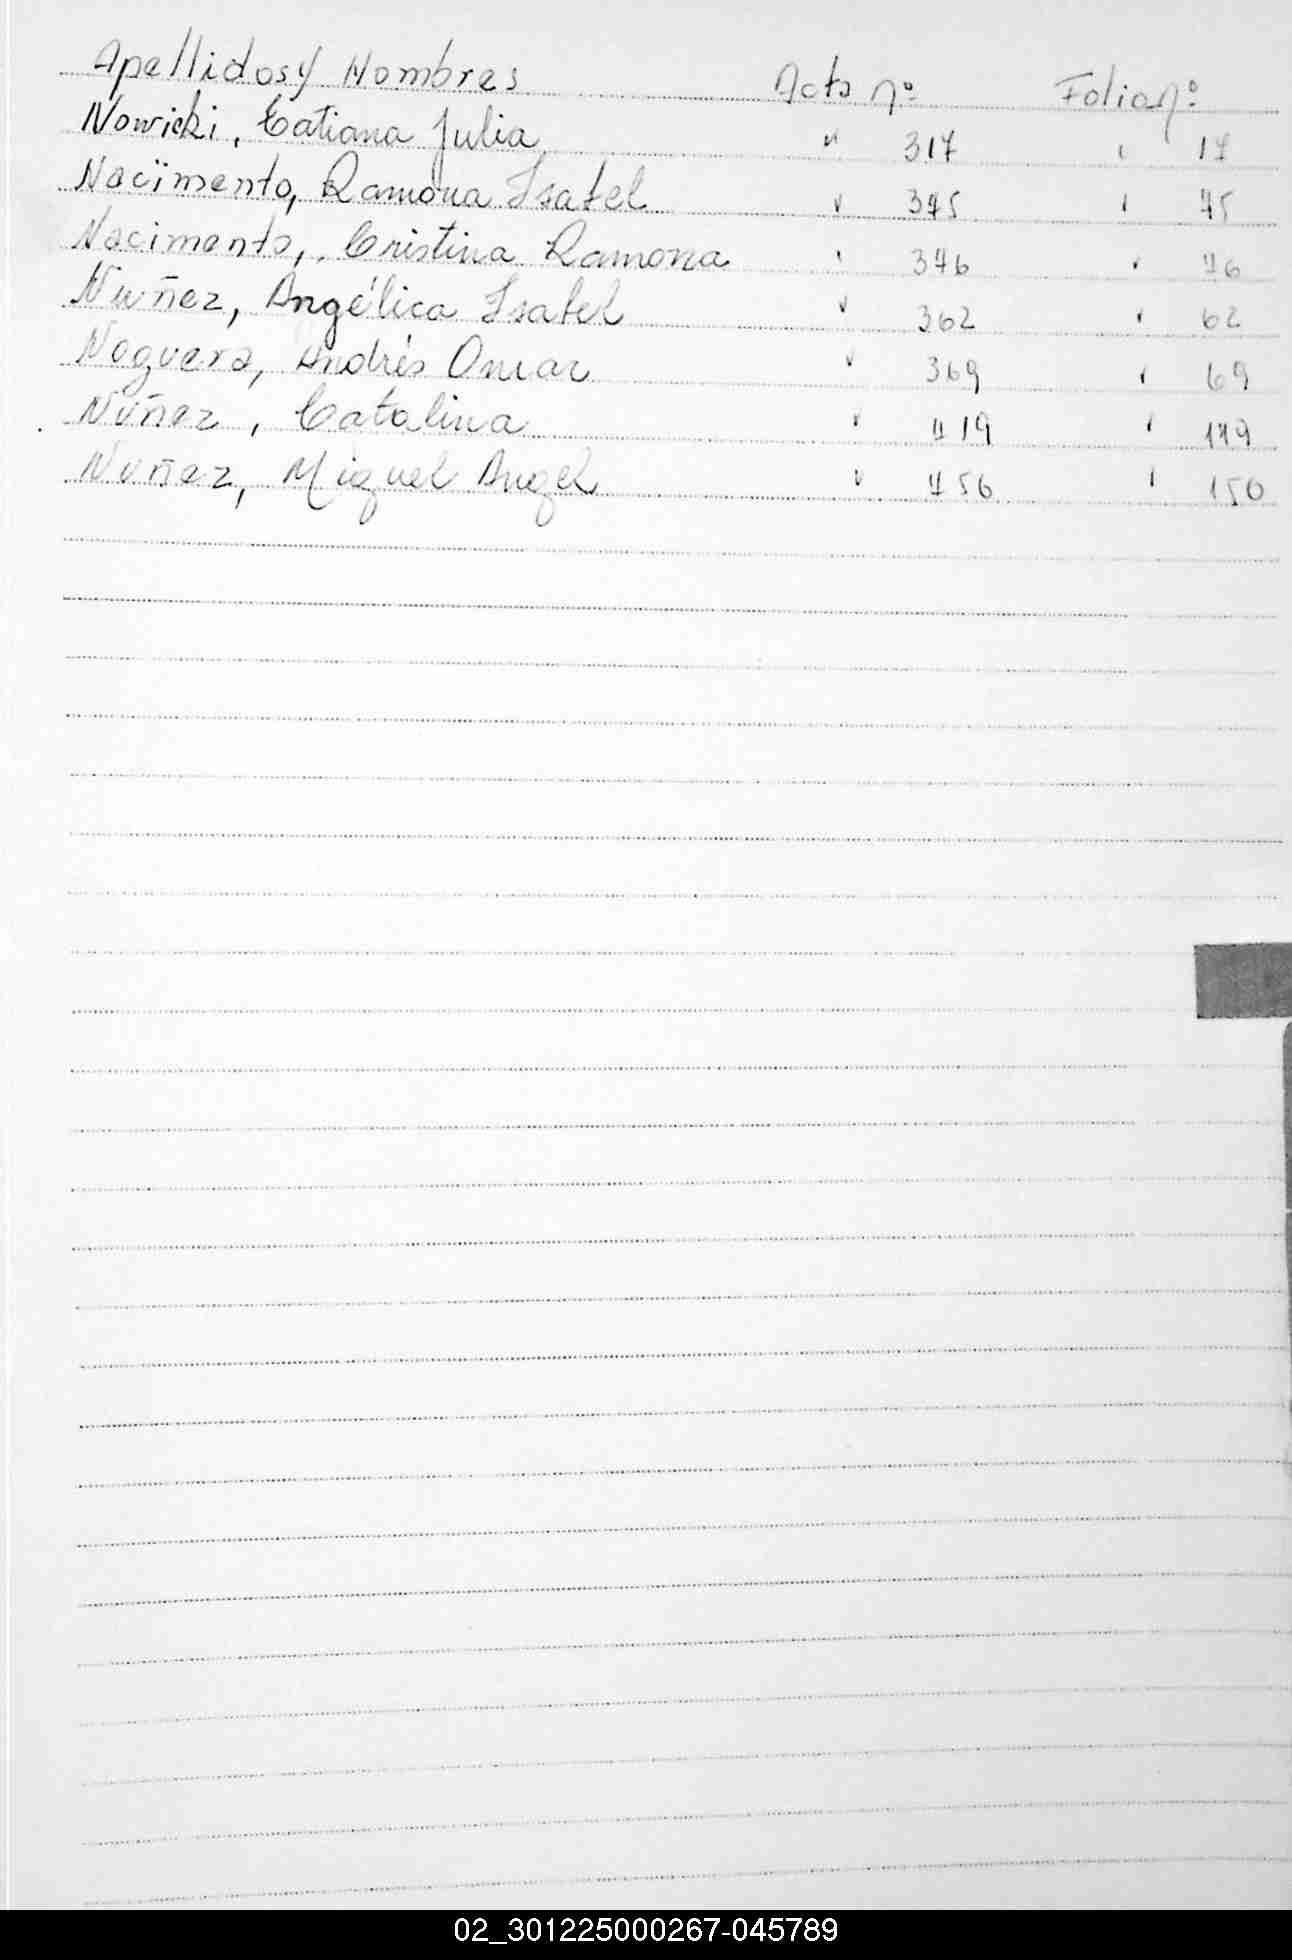 Apellidos y Nombres Acta nº Folio nº
Nowicki, Tatiana Julia " 317 " 17
Nacimento, Ramona Isabel " 345 " 45
Nacimento, Cristina Ramona " 346 " 46
Nuñez, Angélica Isabel " 362 " 62
Noguera, Andrés Omar " 369 " 69
Nuñez, Catalina " 419 " 119
Nuñez, Miguel Angel " 456 " 156
02_301225000267-045789